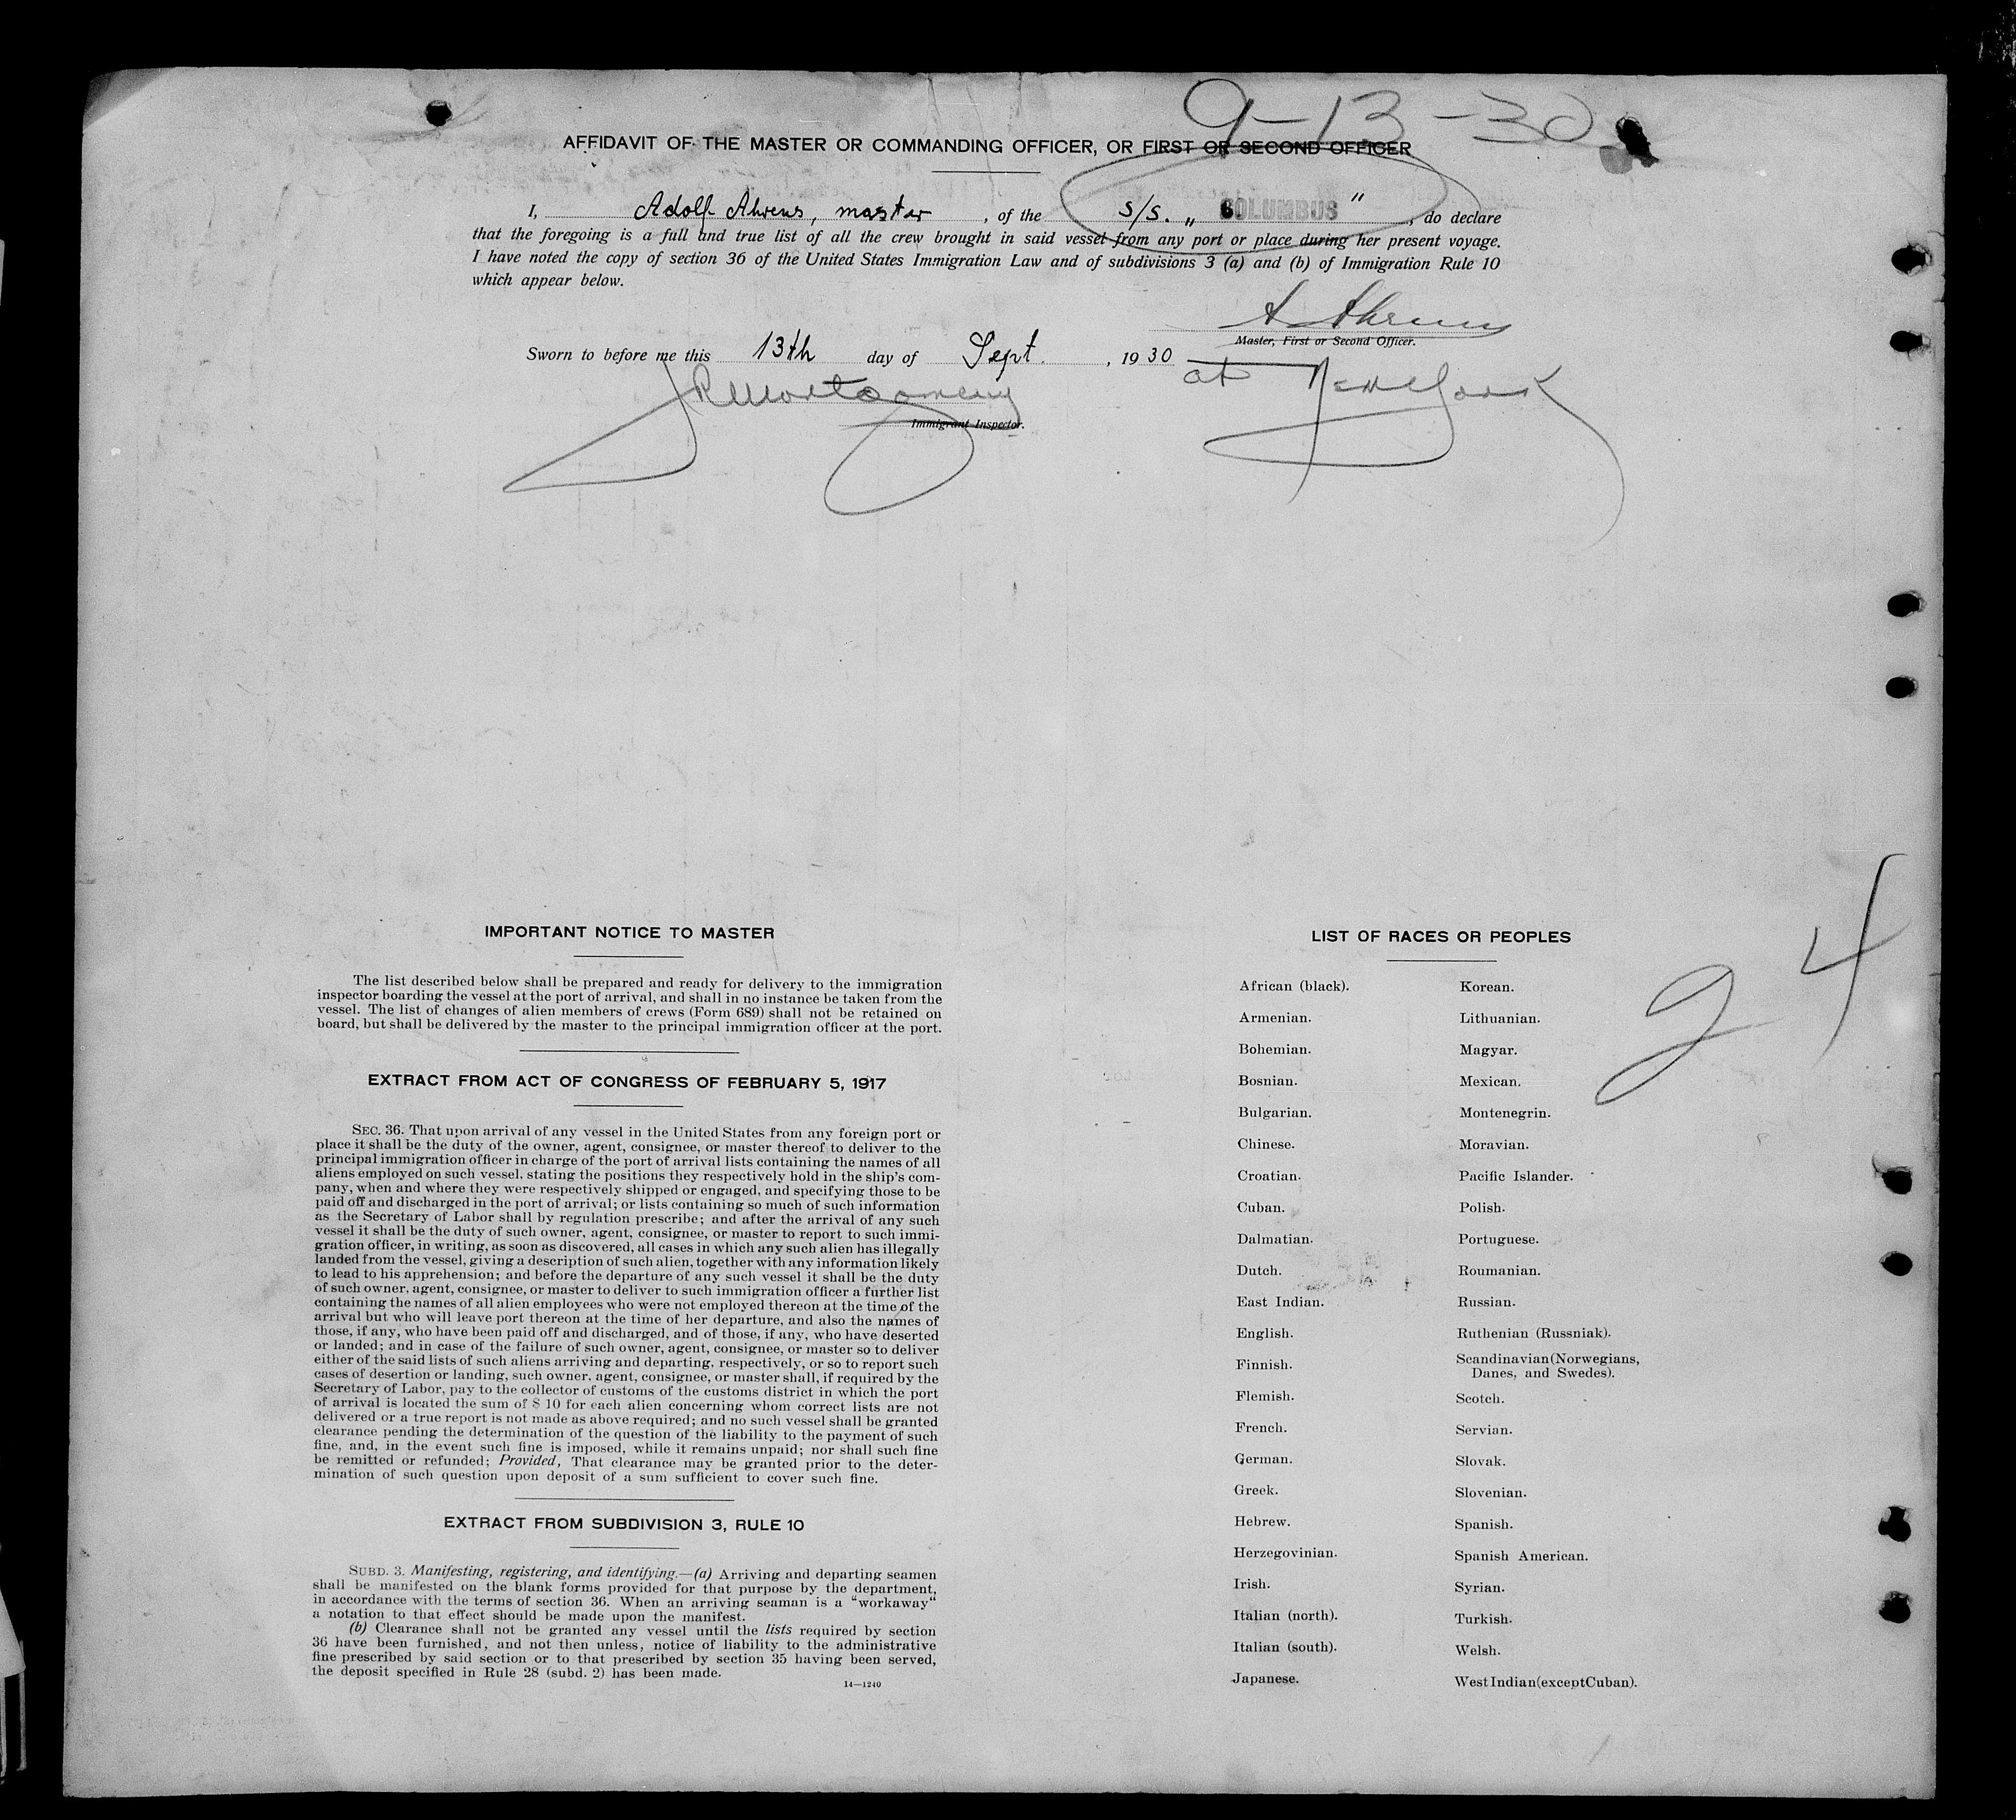 9-13-30
AFFIDAVIT OF THE MASTER OR COMMANDING OFFICER, OR FIRST OR SECOND OFFICER
I, Adolf Ahrens, master, of the s/s. „ COLUMBUS ", do declare
that the foregoing is a full and true list of all the crew brought in said vessel from any port or place during her present voyage.
I have noted the copy of section 36 of the United States Immigration Law and of subdivisions 3 (a) and (b) of Immigration Rule 10
which appear below.
A Ahrens
Master, First or Second Officer.
Sworn to before me this 13th day of Sept., 1930
at New York
JRMontgomery
Immigrant Inspector.
24
IMPORTANT NOTICE TO MASTER
The list described below shall be prepared and ready for delivery to the immigration
inspector boarding the vessel at the port of arrival, and shall in no instance be taken from the
vessel. The list of changes of alien members of crews (Form 689) shall not be retained on
board, but shall be delivered by the master to the principal immigration officer at the port.
EXTRACT FROM ACT OF CONGRESS OF FEBRUARY 5, 1917
SEC. 36. That upon arrival of any vessel in the United States from any foreign port or
place it shall be the duty of the owner, agent, consignee, or master thereof to deliver to the
principal immigration officer in charge of the port of arrival lists containing the names of all
aliens employed on such vessel, stating the positions they respectively hold in the ship's com-
pany, when and where they were respectively shipped or engaged, and specifying those to be
paid off and discharged in the port of arrival; or lists containing so much of such information
as the Secretary of Labor shall by regulation prescribe; and after the arrival of any such
vessel it shall be the duty of such owner, agent, consignee, or master to report to such immi-
gration officer, in writing, as soon as discovered, all cases in which any such alien has illegally
landed from the vessel, giving a description of such alien, together with any information likely
to lead to his apprehension; and before the departure of any such vessel it shall be the duty
of such owner, agent, consignee, or master to deliver to such immigration officer a further list
containing the names of all alien employees who were not employed thereon at the time of the
arrival but who will leave port thereon at the time of her departure, and also the names of
those, if any, who have been paid off and discharged, and of those, if any, who have deserted
or landed; and in case of the failure of such owner, agent, consignee, or master so to deliver
either of the said lists of such aliens arriving and departing, respectively, or so to report such
cases of desertion or landing, such owner, agent, consignee, or master shall, if required by the
Secretary of Labor, pay to the collector of customs of the customs district in which the port
of arrival is located the sum of $ 10 for each alien concerning whom correct lists are not
delivered or a true report is not made as above required; and no such vessel shall be granted
clearance pending the determination of the question of the liability to the payment of such
fine, and, in the event such fine is imposed, while it remains unpaid; nor shall such fine
be remitted or refunded; Provided, That clearance may be granted prior to the deter-
mination of such question upon deposit of a sum sufficient to cover such fine.
EXTRACT FROM SUBDIVISION 3, RULE 10
SUBD. 3. Manifesting, registering, and identifying.—(a) Arriving and departing seamen
shall be manifested on the blank forms provided for that purpose by the department,
in accordance with the terms of section 36. When an arriving seaman is a "workaway"
a notation to that effect should be made upon the manifest.
(b) Clearance shall not be granted any vessel until the lists required by section
36 have been furnished, and not then unless, notice of liability to the administrative
fine prescribed by said section or to that prescribed by section 35 having been served,
the deposit specified in Rule 28 (subd. 2) has been made.
14—1240
LIST OF RACES OR PEOPLES
African (black).
Armenian.
Bohemian.
Bosnian.
Bulgarian.
Chinese.
Croatian.
Cuban.
Dalmatian.
Dutch.
East Indian.
English.
Finnish.
Flemish.
French.
German.
Greek.
Hebrew.
Herzegovinian.
Irish.
Italian (north).
Italian (south).
Japanese.
Korean.
Lithuanian.
Magyar.
Mexican.
Montenegrin.
Moravian.
Pacific Islander.
Polish.
Portuguese.
Roumanian.
Russian.
Ruthenian (Russniak).
Scandinavian(Norwegians,
Danes, and Swedes).
Scotch.
Servian.
Slovak.
Slovenian.
Spanish.
Spanish American.
Syrian.
Turkish.
Welsh.
West Indian(except Cuban).